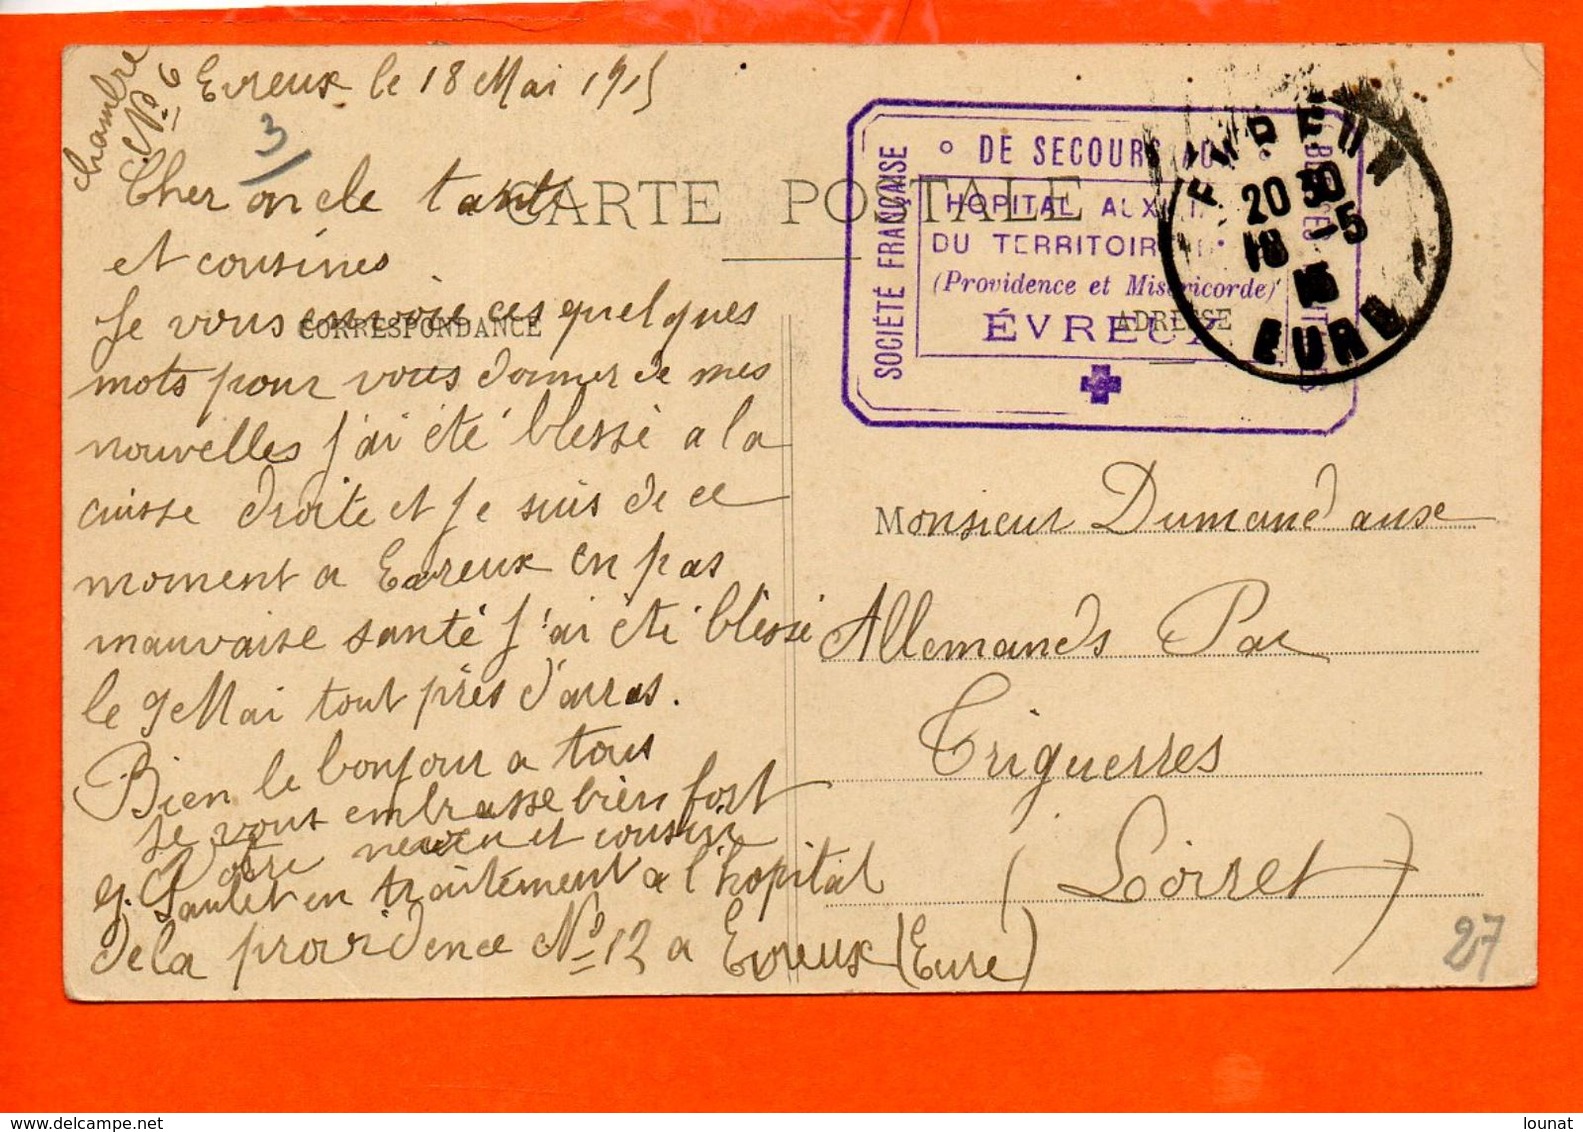 chambre
N° 6
Evreux le 18 Mai 1915
3/
Cher oncle tante
et cousines
Je vous envoie ces quelques
mots pour vous donner de mes
nouvelles j'ai été blessé a la
cuisse droite et je suis de ce
moment a Evreux en pas
mauvaise santé j'ai été blessé
le 9 Mai tout près d'arras.
Bien le bonjour a tous
Je vous embrasse bien fort
Votre neveu et cousin
en traitement a l'hopital
de la providence N° 12 a Evreux (Eure)
CARTE POSTALE
CORRESPONDANCE
ADRESSE
SOCIÉTÉ FRANÇAISE
DE SECOURS AU
HOPITAL AUX
DU TERRITOIRE
(Providence et Miséricorde)
ÉVREUX
EVREUX
20 30
18 -5
15
EURE
Monsieur Dumand auxe
Allemands Par
Triguerres
(Loirret)
27
delcampe.net
lounat